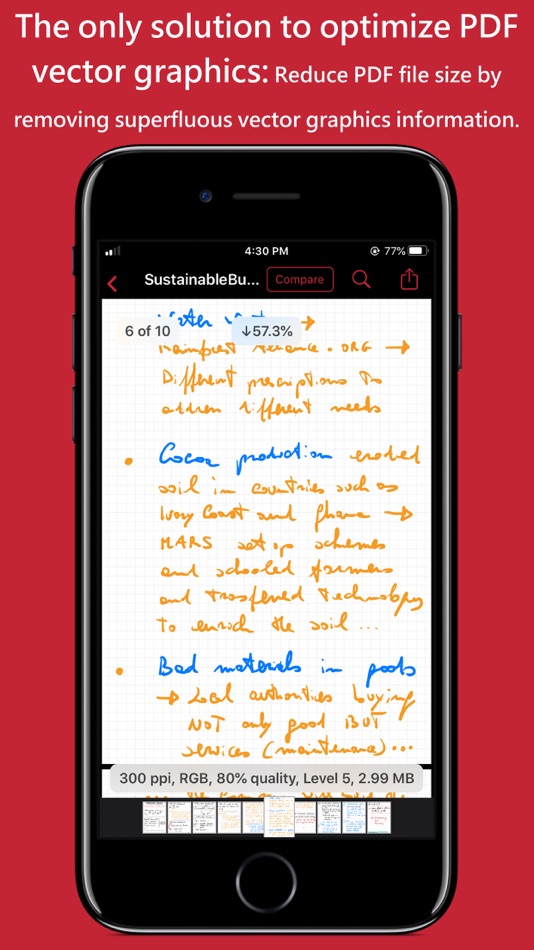 The only solution to optimize PDF
vector graphics: Reduce PDF file size by
removing superfluous vector graphics information.
4:30 PM 77%
SustainableBu... Compare
6 of 10 ↓57.3%
Rainforest Alliance.ORG →
Different prescriptions to
address different needs
• Cocoa production eroded
soil in countries such as
Ivory Coast and Ghana →
MARS set up schemes
and schooled farmers
and trasfered technology
to enrich the soil ...
• Bad materials in roads
→ Local authorities buying
NOT only good BUT
services (maintenance)...
300 ppi, RGB, 80% quality, Level 5, 2.99 MB